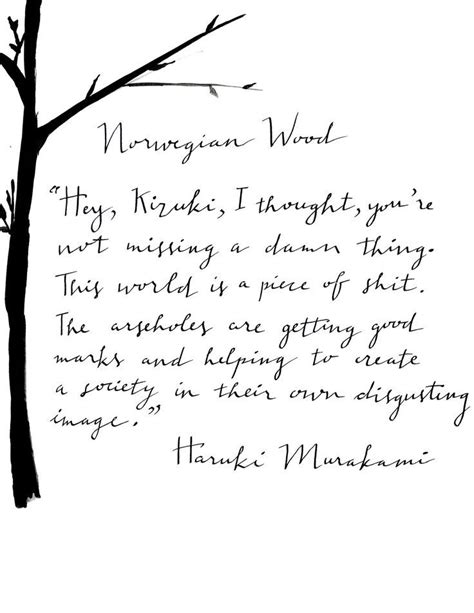 Norwegian Wood
"Hey, Kizuki, I thought, you're
not missing a damn thing.
This world is a piece of shit.
The arseholes are getting good
marks and helping to create
a society in their own disgusting
image."
Haruki Murakami